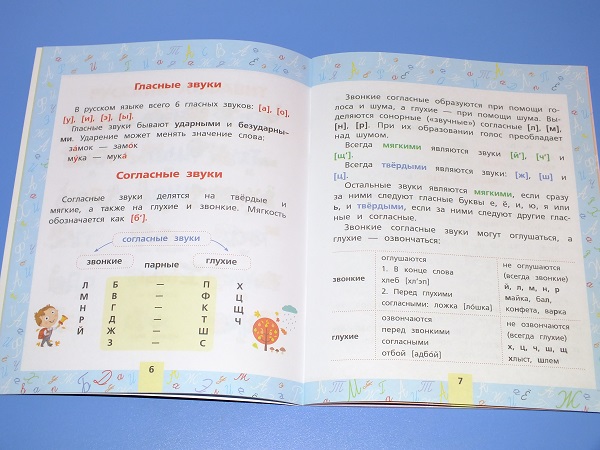 Гласные звуки
В русском языке всего 6 гласных звуков: [а], [о],
[у], [и], [э], [ы].
Гласные звуки бывают ударными и безударны-
ми. Ударение может менять значение слова:
за́мок — замо́к
му́ка — мука́
Согласные звуки
Согласные звуки делятся на твёрдые и
мягкие, а также на глухие и звонкие. Мягкость
обозначается как [б'].
согласные звуки
звонкие парные глухие
Л Б — П Х
М В — Ф Ц
Н Г — К Щ
Р Д — Т Ч
Й Ж — Ш
З — С
6
Звонкие согласные образуются при помощи го-
лоса и шума, а глухие — при помощи шума. Вы-
деляются сонорные («звучные») согласные [л], [м],
[н], [р]. При их образовании голос преобладает
над шумом.
Всегда мягкими являются звуки [й'], [ч'] и
[щ'].
Всегда твёрдыми являются звуки: [ж], [ш] и
[ц].
Остальные звуки являются мягкими, если сразу
за ними следуют гласные буквы е, ё, и, ю, я или
ь, и твёрдыми, если за ними следуют другие глас-
ные и согласные.
Звонкие согласные звуки могут оглушаться, а
глухие — озвончаться:
звонкие
оглушаются
1. В конце слова
хлеб [хл'эп]
2. Перед глухими
согласными: ложка [ло́шка]
не оглушаются
(всегда звонкие)
й, л, м, н, р
майка, бал,
конфета, варка
глухие
озвончаются
перед звонкими
согласными
отбой [адбо́й]
не озвончаются
(всегда глухие)
х, ц, ч, ш, щ
хлыст, шлем
7